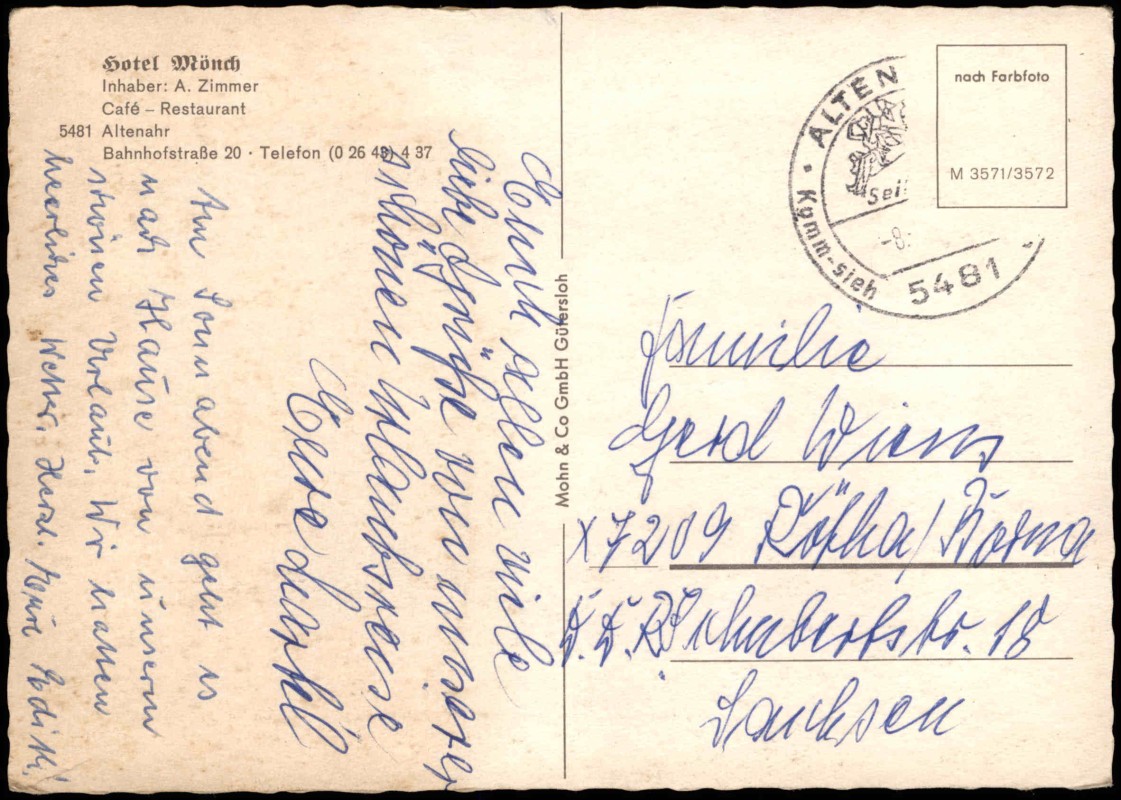 Hotel Mönch
Inhaber: A. Zimmer
Café – Restaurant
5481 Altenahr
Bahnhofstraße 20 · Telefon (0 26 43) 4 37
Euch allen viele
liebe Grüße von unserer
schönen Urlaubsreise
Eure
Am Sonnabend geht es
nach Hause von unserem
schönen Urlaub. Wir hatten
herrliches Wetter. Herzl. Grüße
Mohn & Co GmbH Gütersloh
ALTEN
Seil
Komm-sieh
-8.
5481
nach Farbfoto
M 3571/3572
Familie
Gerd Wiens
X7209 Rötha/Borna
D.D.R. Schubertstr. 18
Sachsen